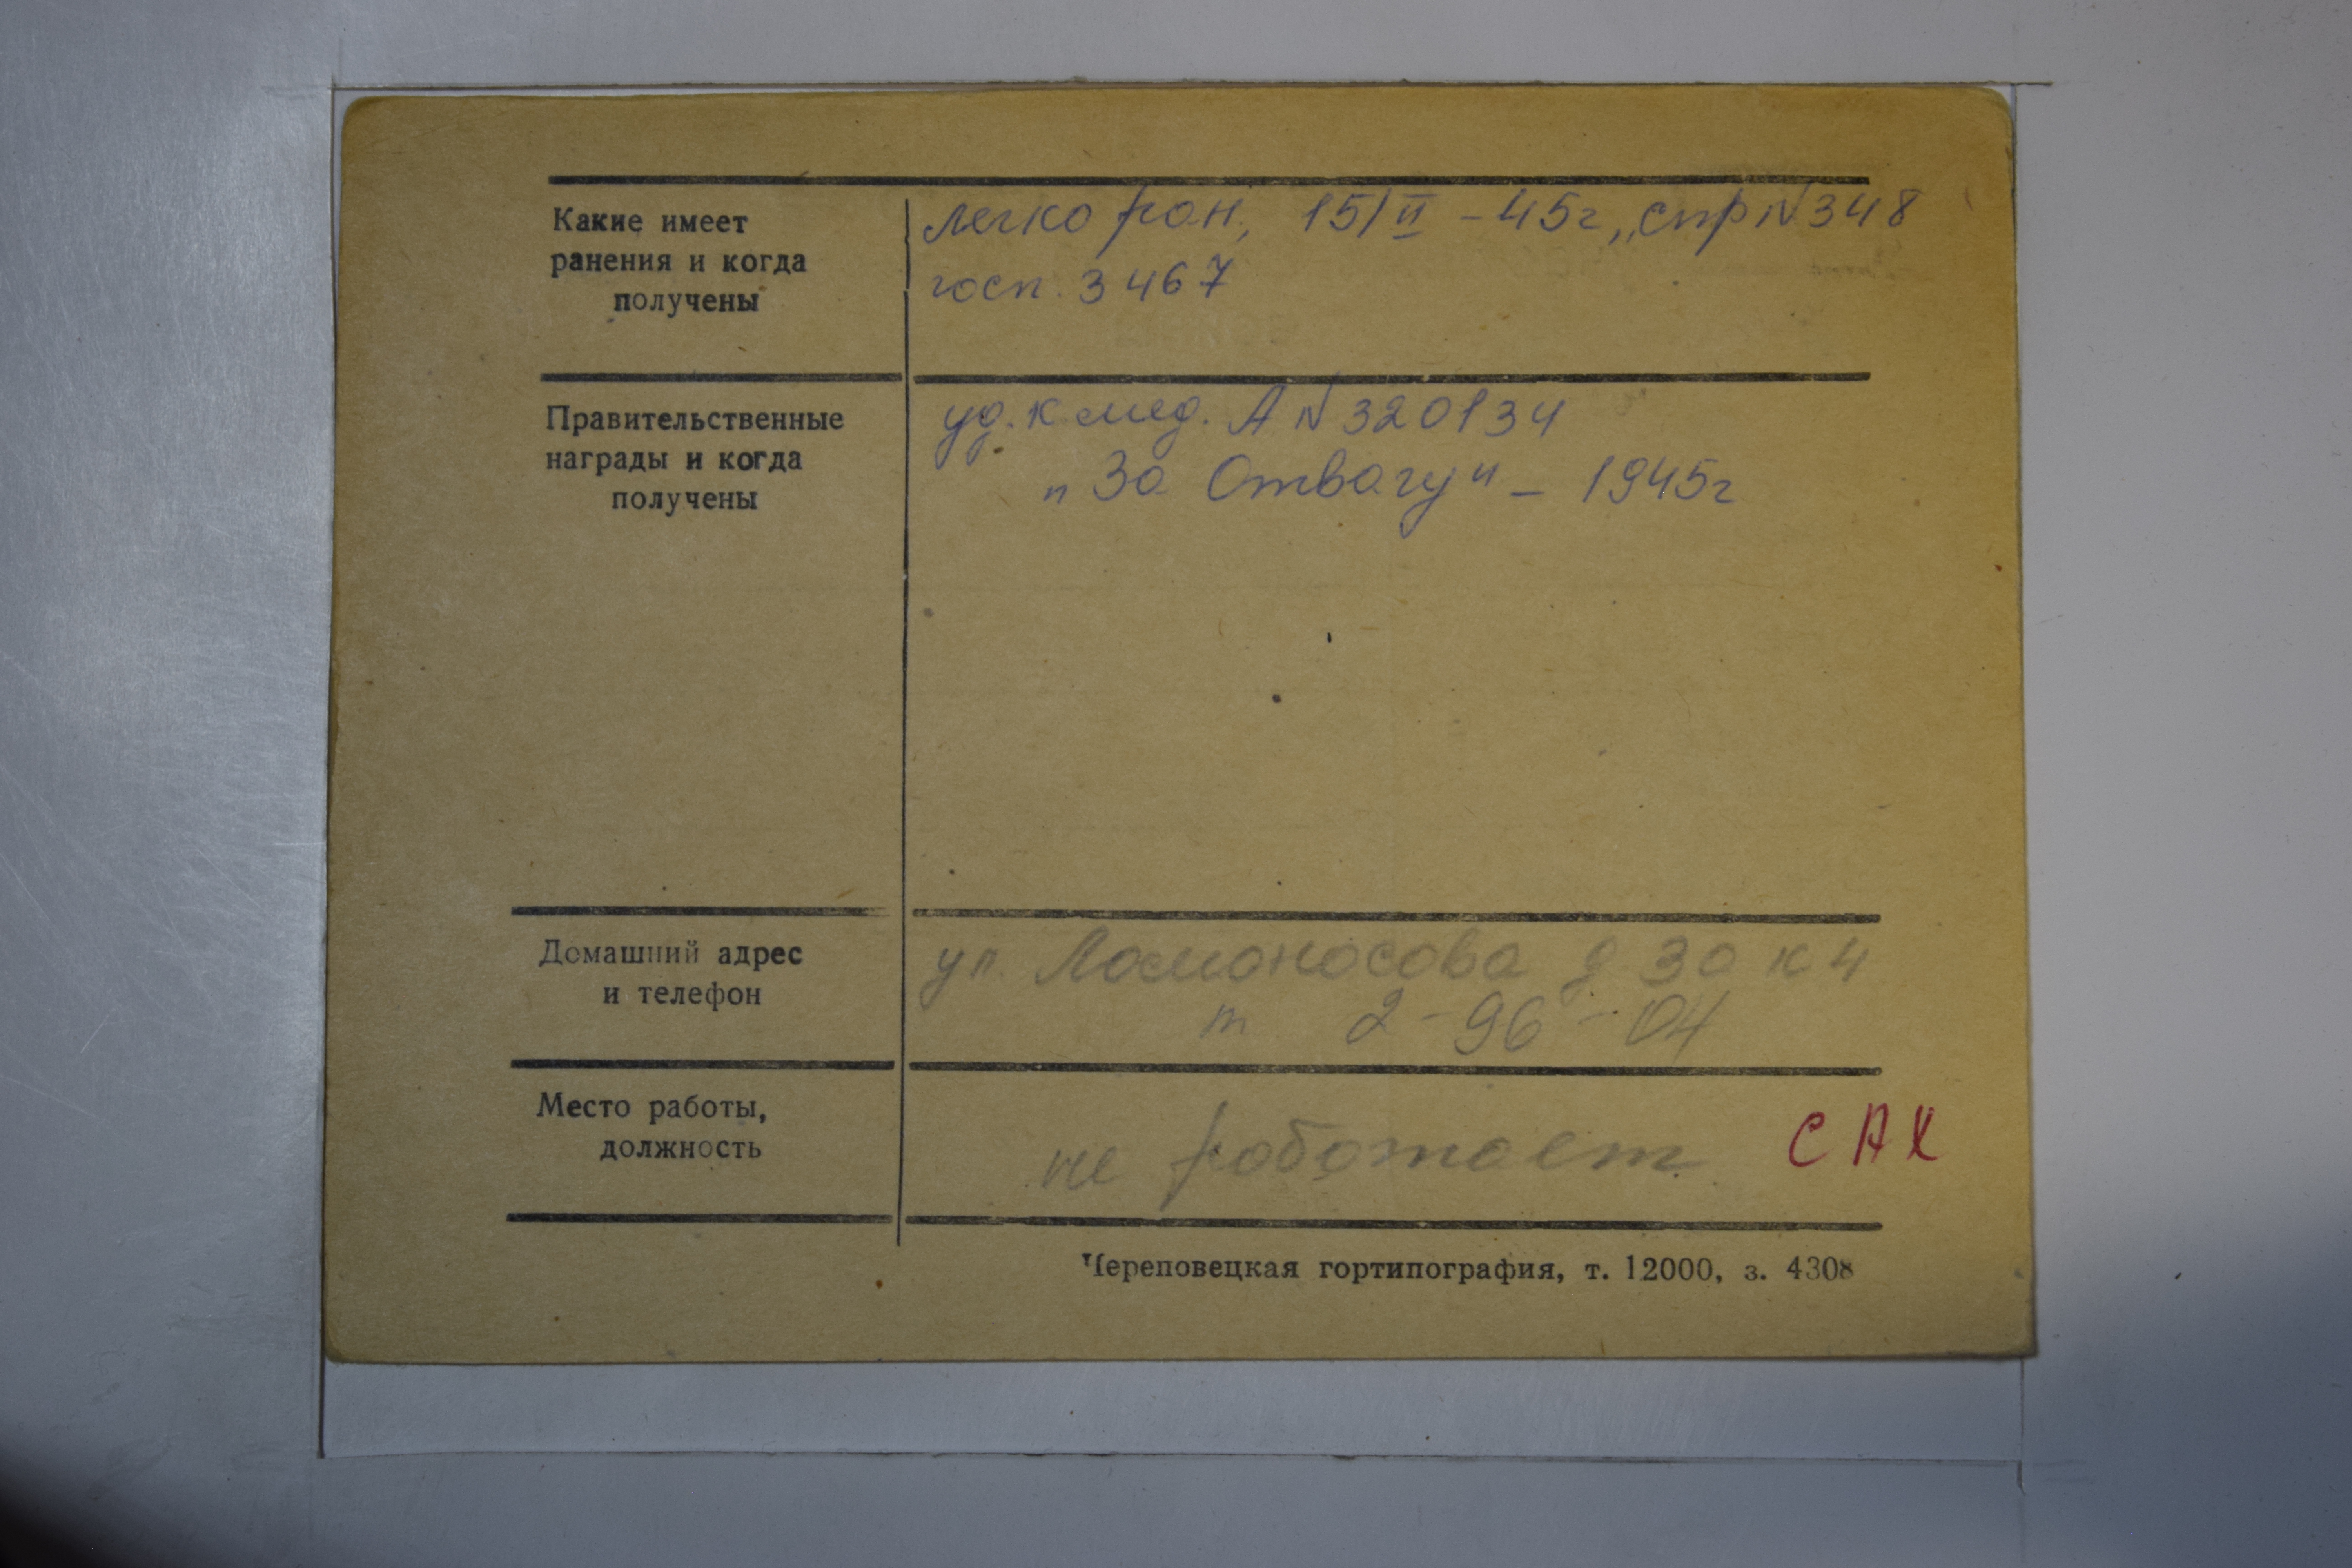 Какие имеет
ранения и когда
получены
легко ран, 15/II - 45г, „спр N 348
госп. 3467
Правительственные
награды и когда
получены
уд. к мед. А N 320134
„За Отвагу" - 1945г
Домашний адрес
и телефон
ул. Ломоносова д 30 к 4
т 2-96-04
Место работы,
должность
не работает САХ
Череповецкая гортипография, т. 12000, з. 4308